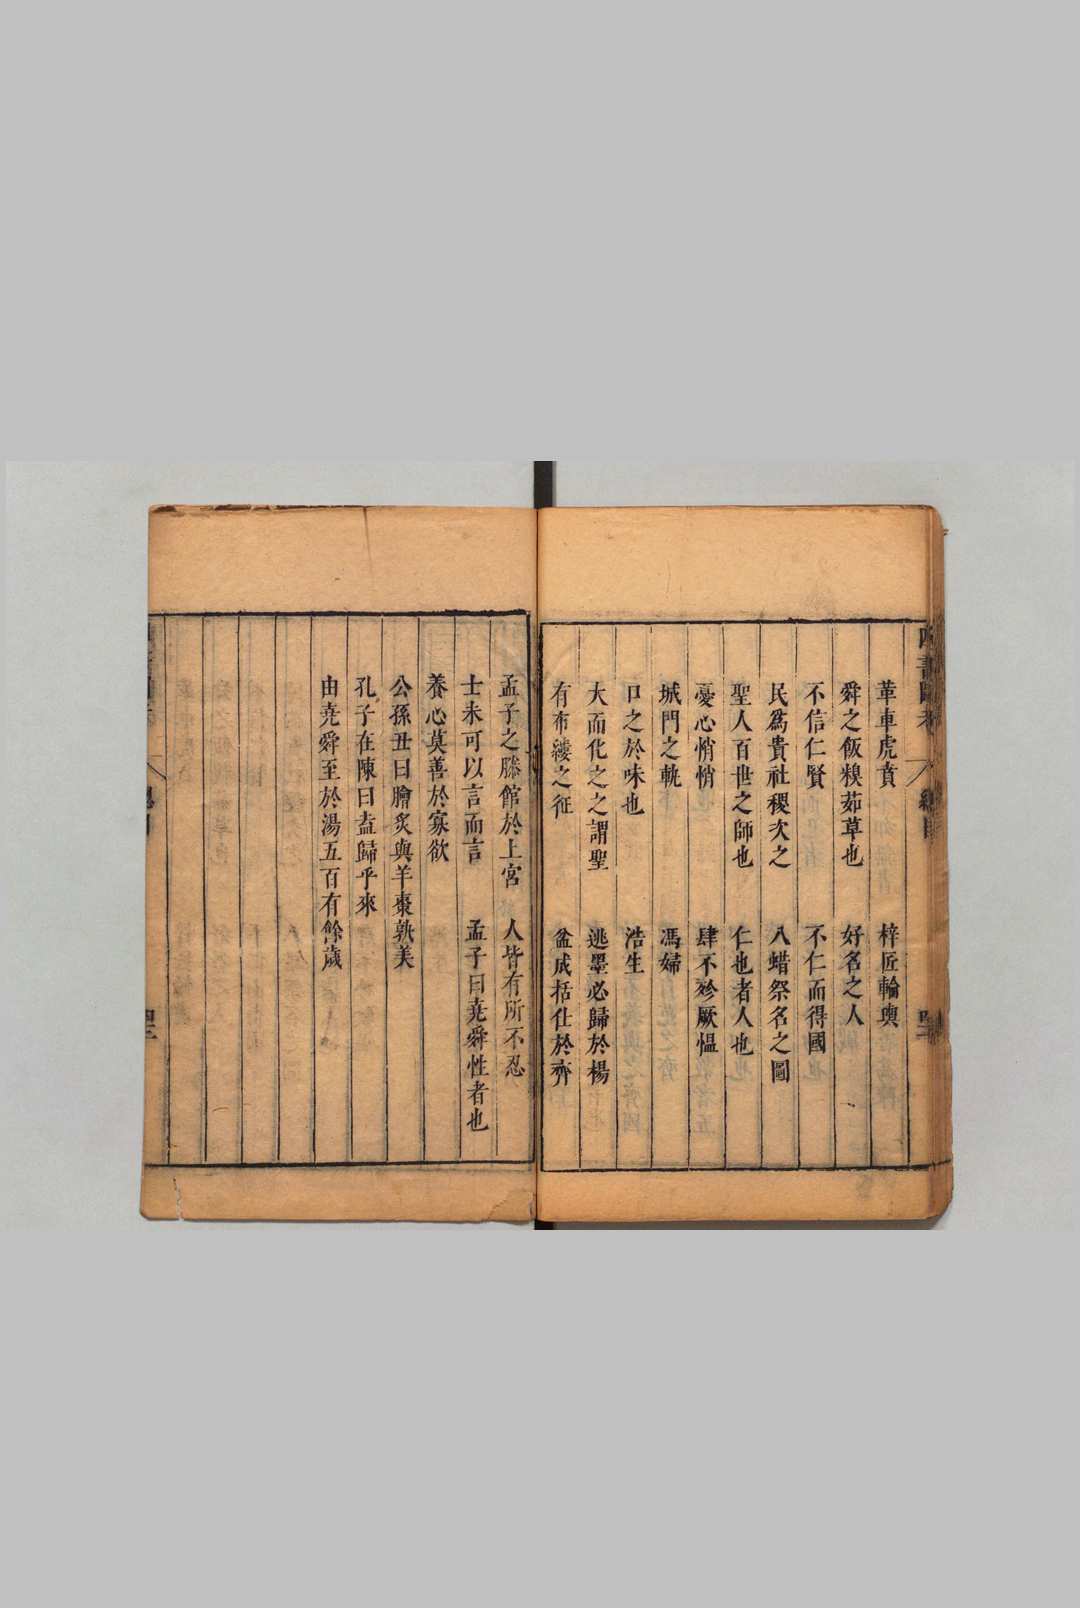 四書圖考 總目
革車虎賁 梓匠輪輿
舜之飯糗茹草也 好名之人
不信仁賢 不仁而得國
民爲貴社稷次之 八蜡祭名之圖
聖人百世之師也 仁也者人也
憂心悄悄 肆不殄厥慍
城門之軌 馮婦
口之於味也 浩生
大而化之之謂聖 逃墨必歸於楊
有布縷之征 盆成括仕於齊
孟子之滕館於上宮 人皆有所不忍
士未可以言而言 孟子曰堯舜性者也
養心莫善於寡欲
公孫丑曰膾炙與羊棗孰美
孔子在陳曰盍歸乎來
由堯舜至於湯五百有餘歲